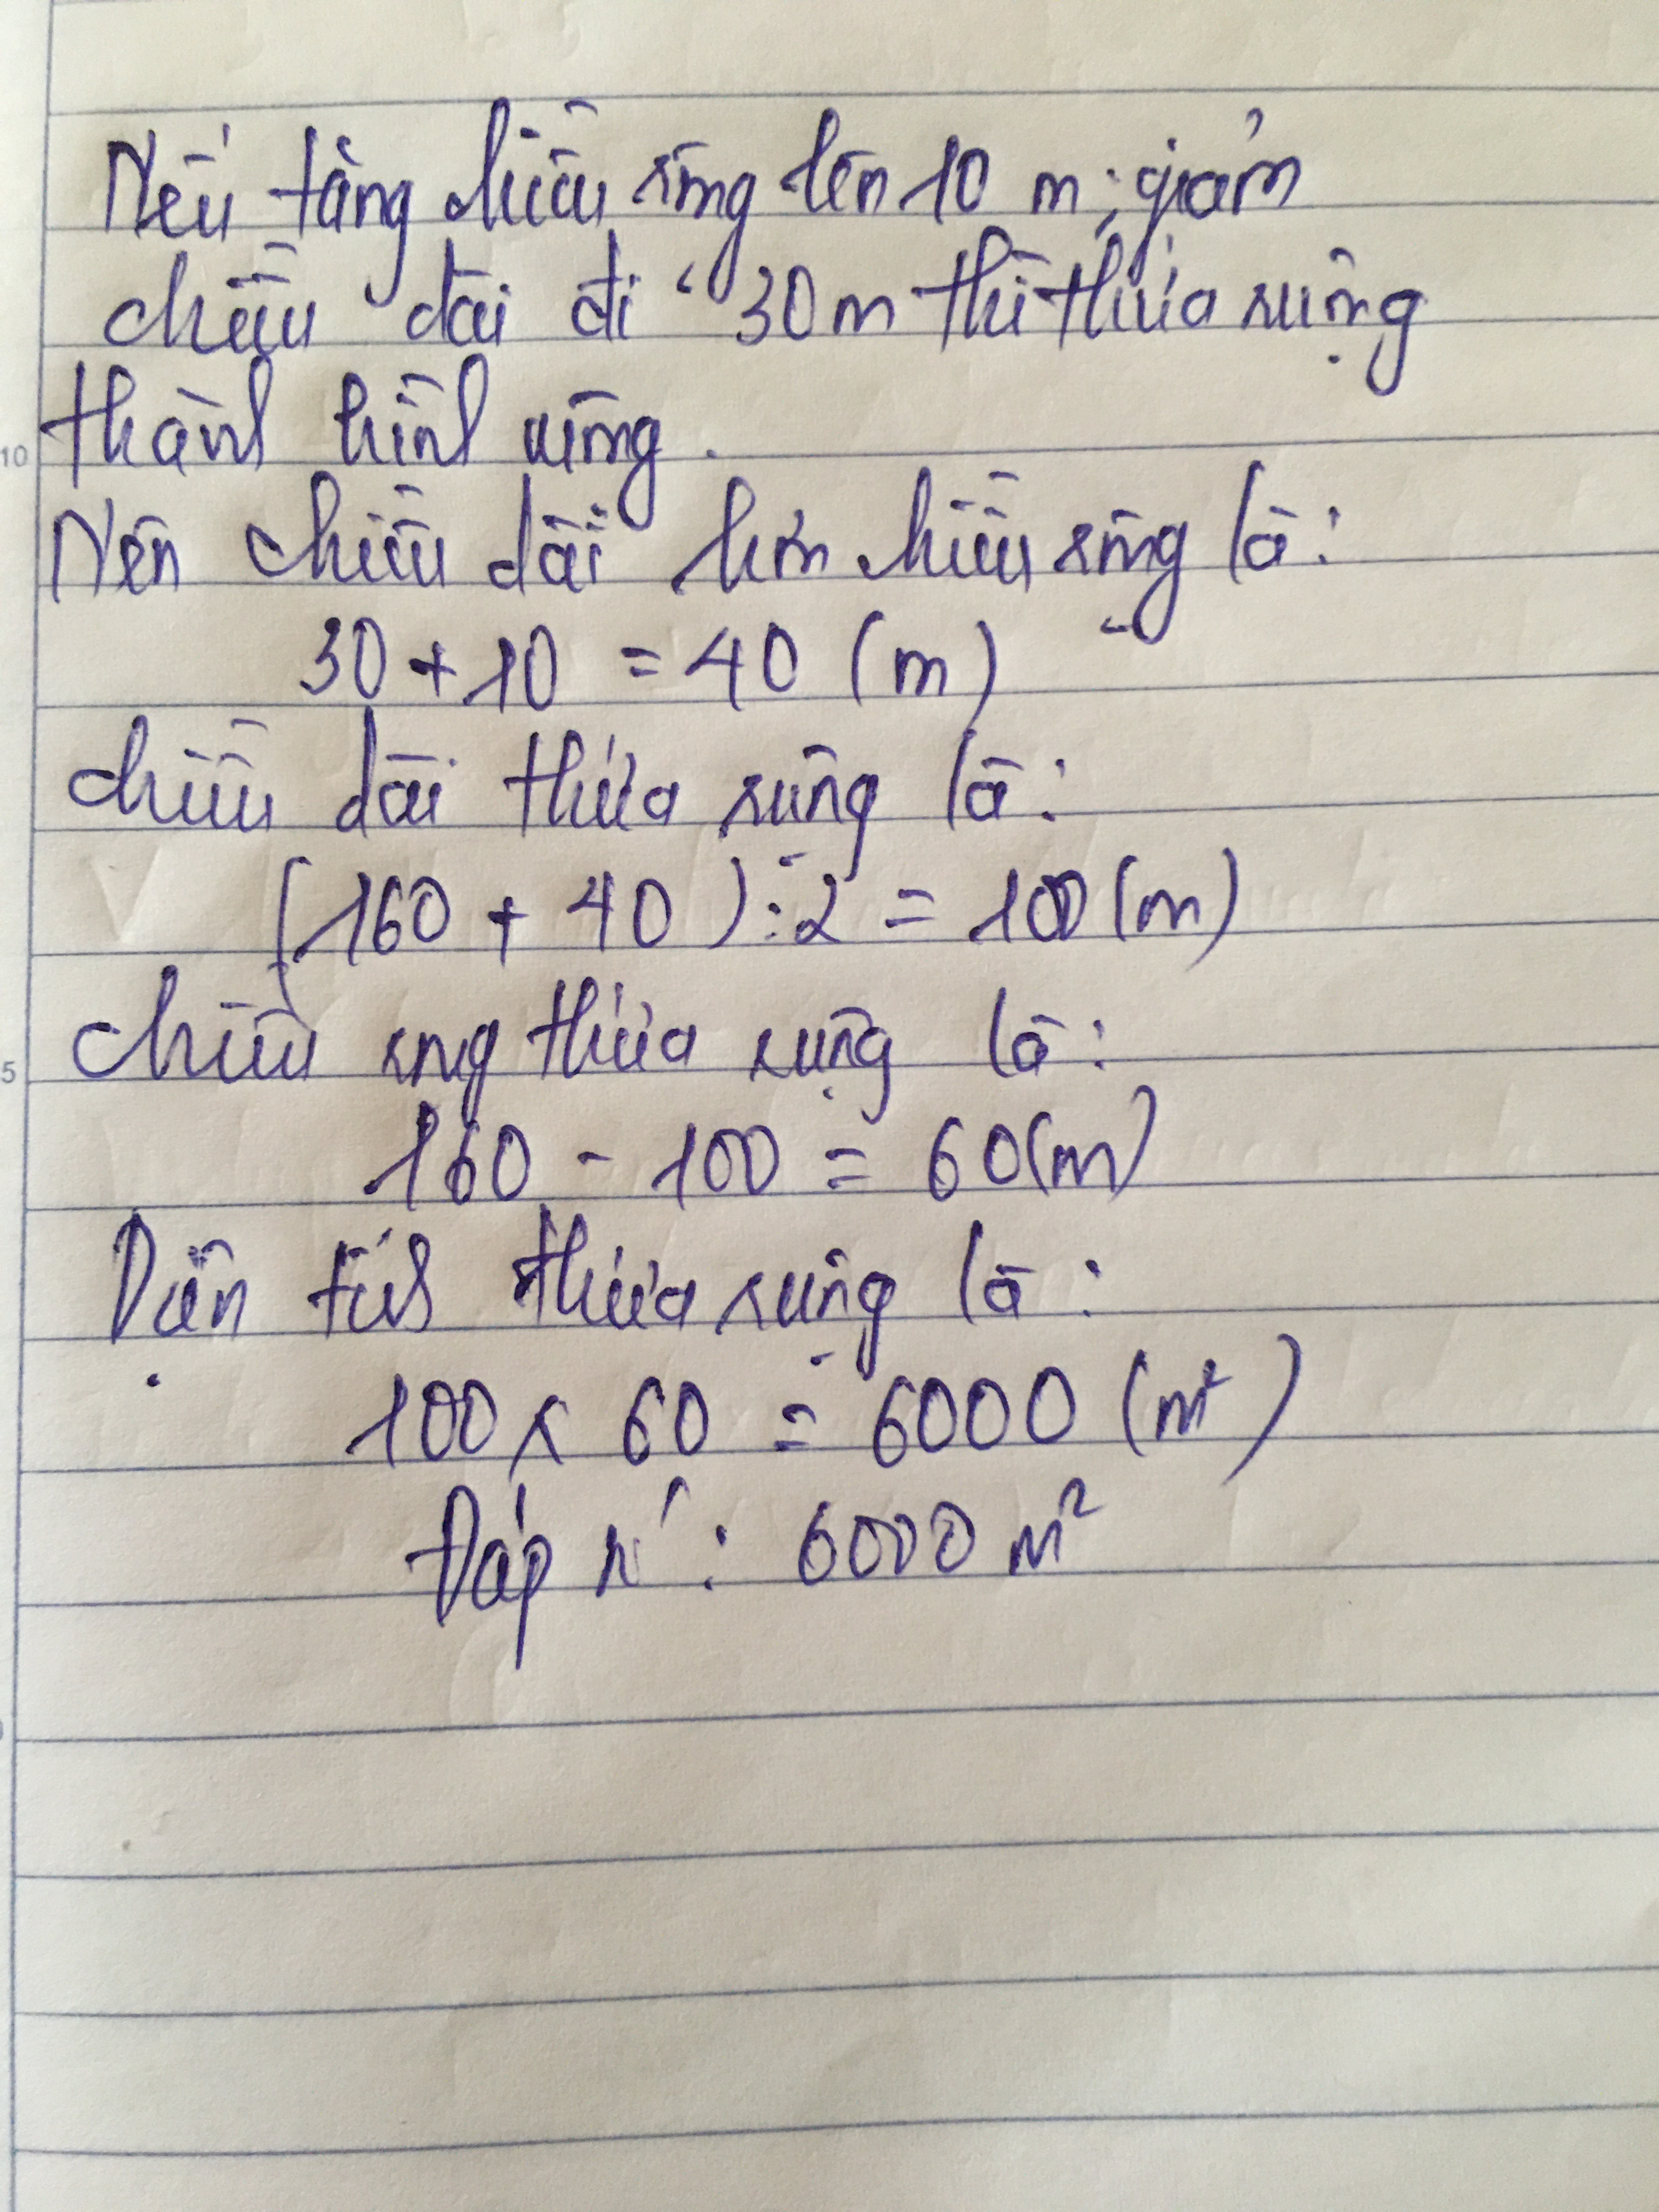 Nếu tăng chiều rộng lên 10 m; giảm
chiều dài đi 30m thì thửa ruộng
thành hình vuông.
Nên chiều dài hơn chiều rộng là:
30 + 10 = 40 (m)
chiều dài thửa ruộng là:
(160 + 40) : 2 = 100 (m)
chiều rộng thửa ruộng là:
160 - 100 = 60 (m)
Diện tích thửa ruộng là:
100 x 60 = 6000 (m²)
Đáp số: 6000 m²
10
5